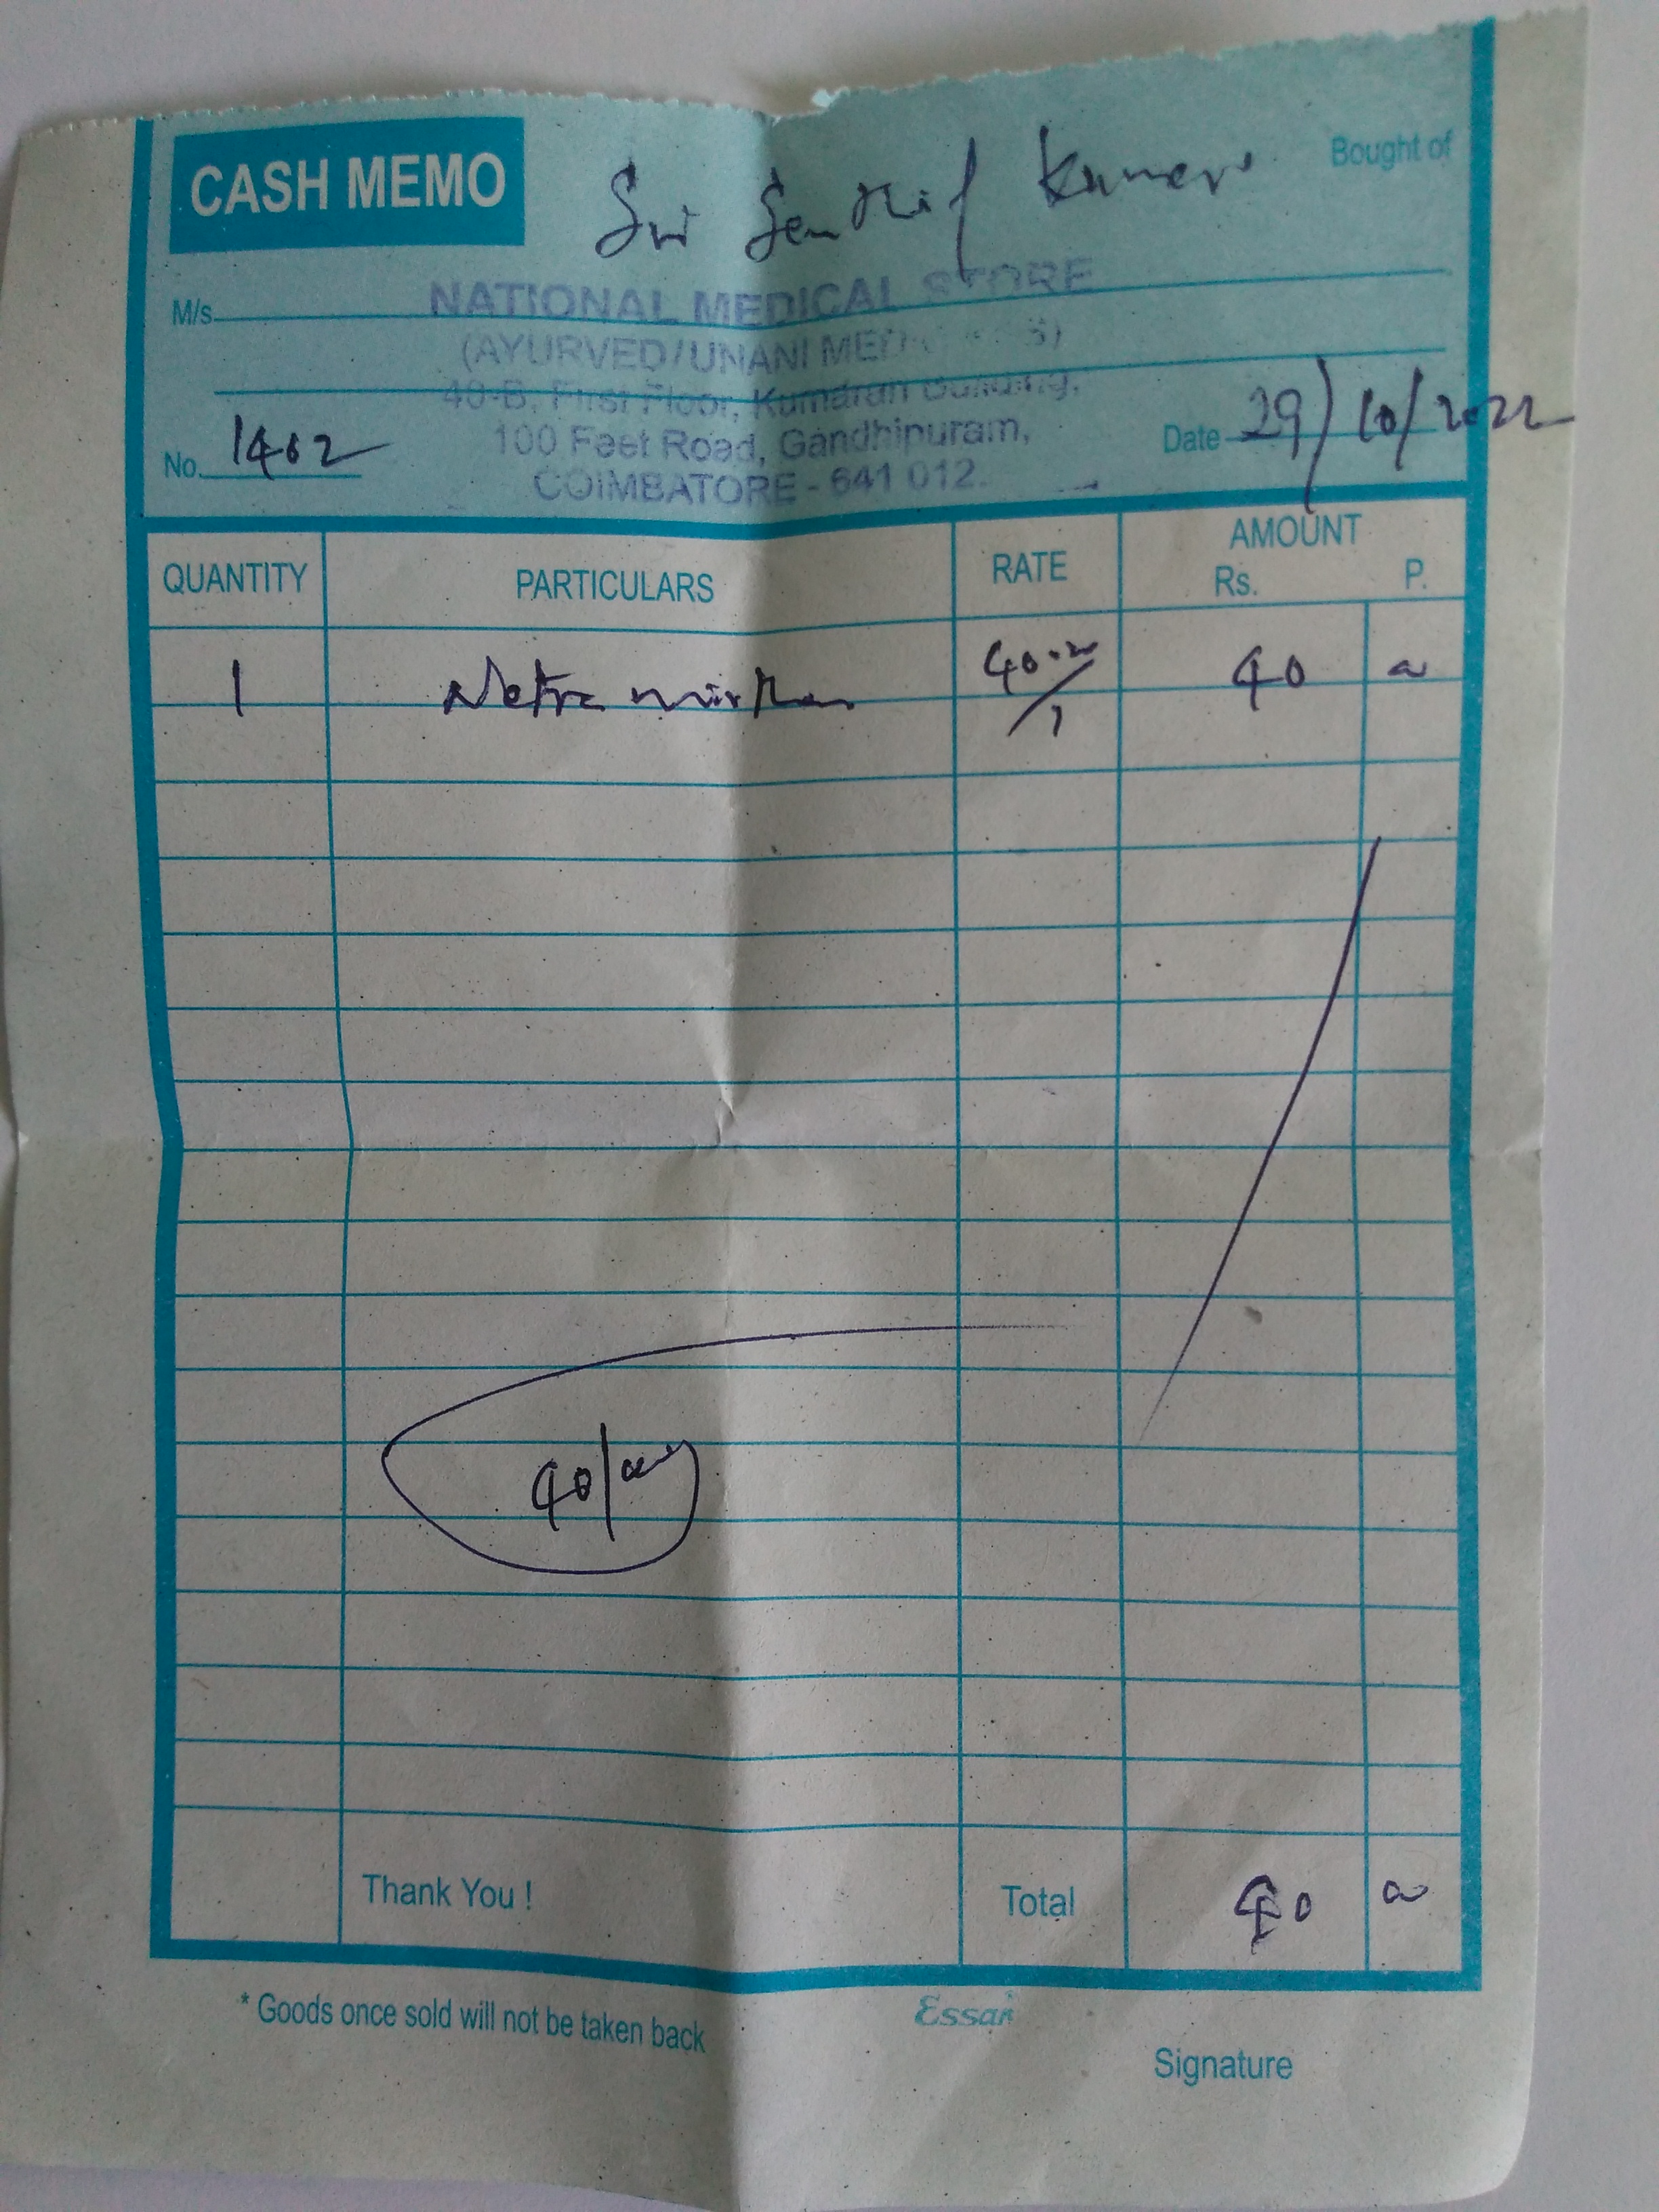 CASH MEMO
Sri Senthil Kumar
Bought of
M/s.
NATIONAL MEDICAL STORE
(AYURVED/UNANI
40-B, First Floor, Kumaran Building,
100 Feet Road, Gandhipuram,
COIMBATORE - 641 012.
No. 1402
Date 29/10/2022
QUANTITY PARTICULARS RATE AMOUNT
Rs. P.
1 Netra 40 40
40/
Thank You ! Total 40
* Goods once sold will not be taken back
Essar
Signature